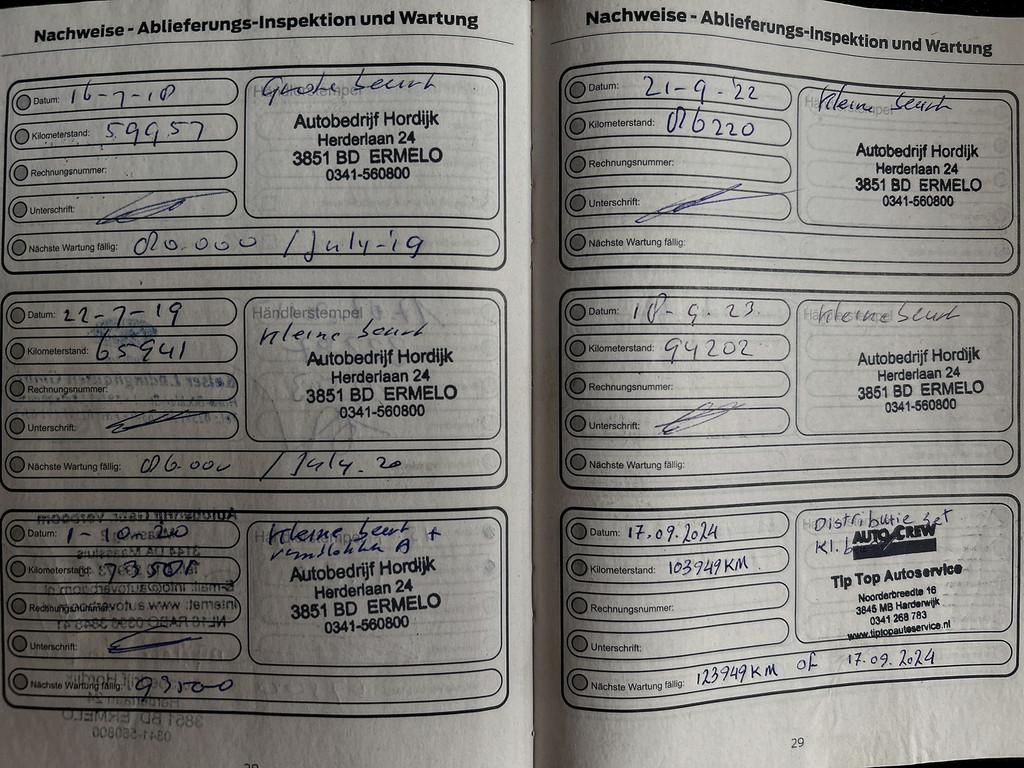 Nachweise - Ablieferungs-Inspektion und Wartung
Datum: 16-7-18
Kilometerstand: 59957
Rechnungsnummer:
Unterschrift:
Nächste Wartung fällig: 80.000 / July-19
Grote beurt
Autobedrijf Hordijk
Herderlaan 24
3851 BD ERMELO
0341-560800
Datum: 22-7-19
Kilometerstand: 65941
Rechnungsnummer:
Unterschrift:
Nächste Wartung fällig: 86.000 / July. 20
Händlerstempel
Kleine beurt
Autobedrijf Hordijk
Herderlaan 24
3851 BD ERMELO
0341-560800
Datum: 1-10-20
Kilometerstand: 73508
Rechnungsnummer:
Unterschrift:
Nächste Wartung fällig: 93500
Kleine beurt +
Autobedrijf Hordijk
Herderlaan 24
3851 BD ERMELO
0341-560800
Nachweise - Ablieferungs-Inspektion und Wartung
Datum: 21-9-'22
Kilometerstand: 86220
Rechnungsnummer:
Unterschrift:
Nächste Wartung fällig:
Kleine beurt
Autobedrijf Hordijk
Herderlaan 24
3851 BD ERMELO
0341-560800
Datum: 18-9.23
Kilometerstand: 94202
Rechnungsnummer:
Unterschrift:
Nächste Wartung fällig:
Kleine beurt
Autobedrijf Hordijk
Herderlaan 24
3851 BD ERMELO
0341-560800
Datum: 17.09.2024
Kilometerstand: 103949KM
Rechnungsnummer:
Unterschrift:
Nächste Wartung fällig: 123949KM of 17.09.2024
Distributie set
Kl.
AUTO CREW
Tip Top Autoservice
Noorderbreedte 16
3845 MB Harderwijk
0341 268 783
www.tiptopautoservice.nl
29